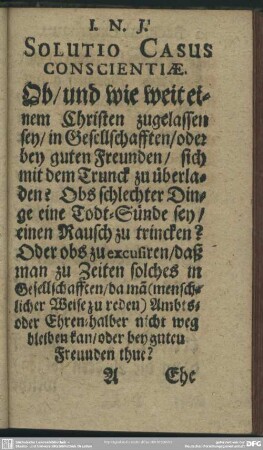 I. N. J.
SOLUTIO CASUS
CONSCIENTIÆ.
Ob/und wie weit ei-
nem Christen zugelassen
sey/in Gesellschafften/oder
bey guten Freunden/ sich
mit dem Trunck zu überla-
den? Obs schlechter Din-
ge eine Todt-Sünde sey/
einen Rausch zu trincken?
Oder obs zu excusiren/daß
man zu Zeiten solches in
Gesellschafften/da mã(mensch-
licher Weise zu reden) Ambts-
oder Ehren-halber nicht weg
bleiben kan/oder bey guten
Freunden thue?
A Ehe